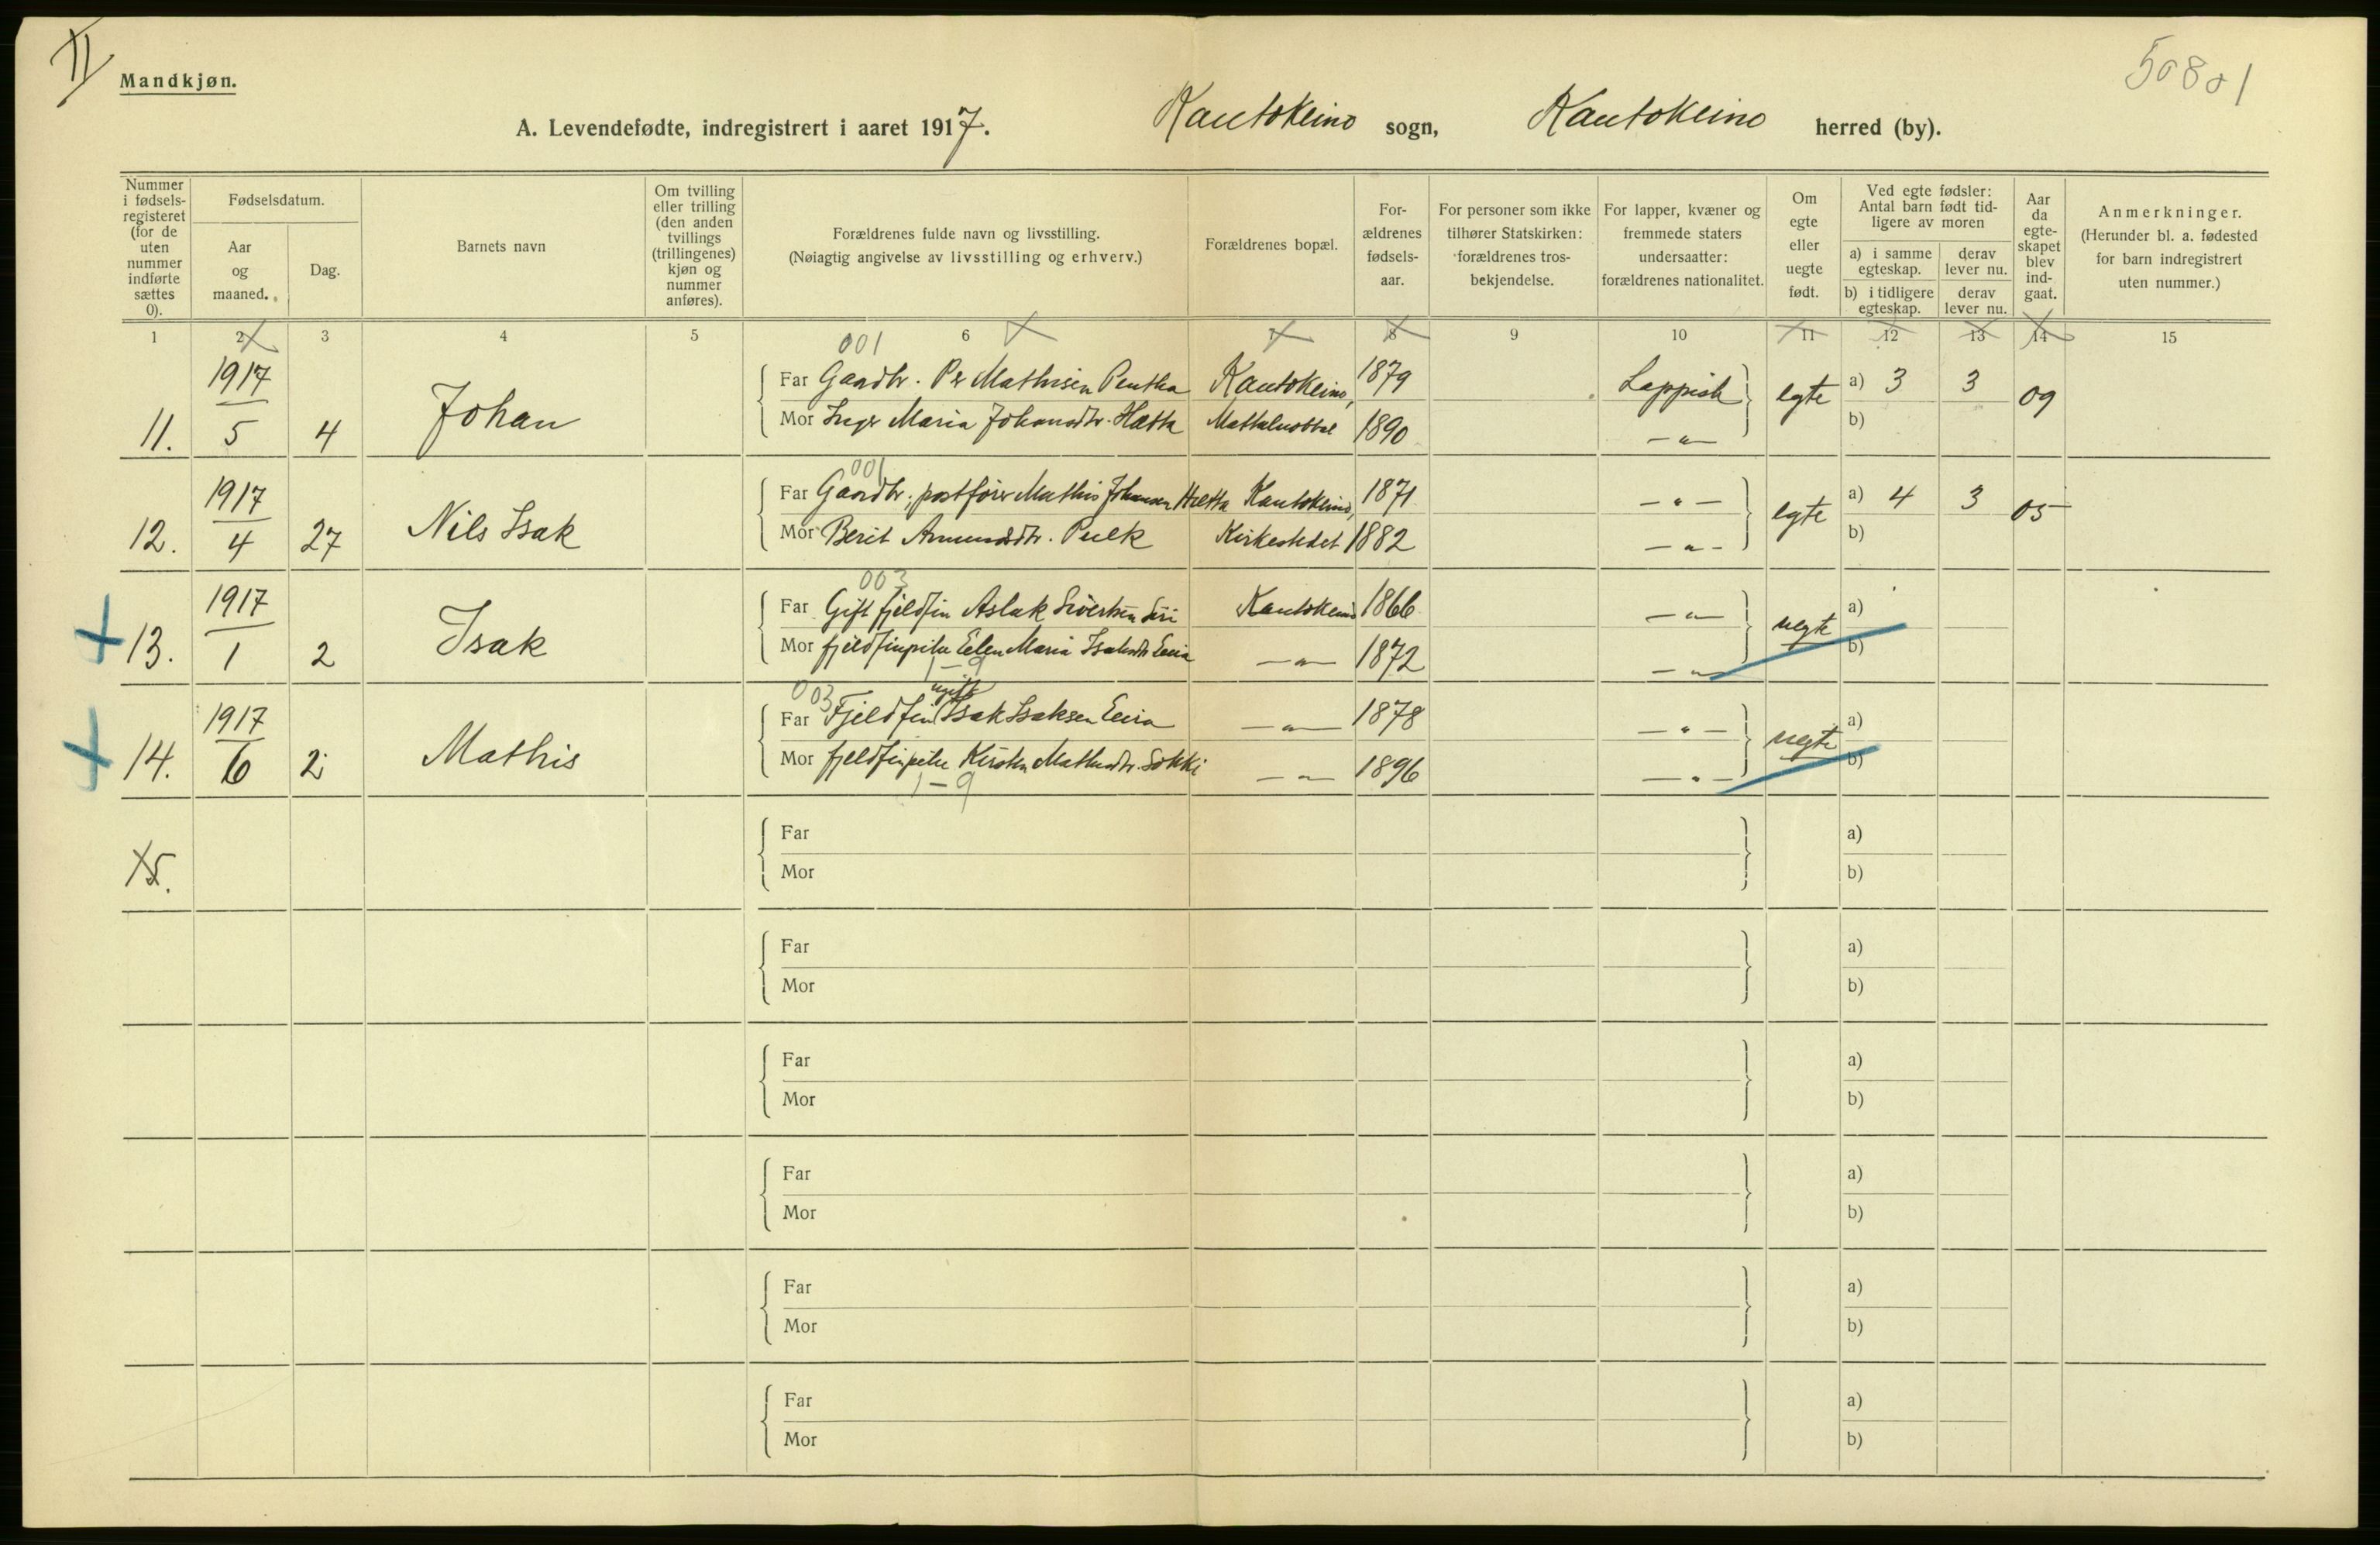 II
Mandkjøn.
50801
A. Levendefødte, indregistrert i aaret 1917. Kautokeino sogn, Kautokeino herred (by).
Nummer i fødsels-registeret (for de uten nummer indførte sættes 0).
Fødselsdatum.
Aar og maaned.
Dag.
Barnets navn
Om tvilling eller trilling (den anden tvillings (trillingenes) kjøn og nummer anføres).
Forældrenes fulde navn og livsstilling.
(Nøiagtig angivelse av livsstilling og erhverv.)
Forældrenes bopæl.
For-ældrenes fødsels-aar.
For personer som ikke tilhører Statskirken: forældrenes tros-bekjendelse.
For lapper, kvæner og fremmede staters undersaatter: forældrenes nationalitet.
Om egte eller uegte født.
Ved egte fødsler: Antal barn født tid-ligere av moren
a) i samme egteskap.
derav lever nu.
b) i tidligere egteskap.
derav lever nu.
Aar da egte-skapet blev ind-gaat.
Anmerkninger.
(Herunder bl. a. fødested for barn indregistrert uten nummer.)
1 2 3 4 5 6 7 8 9 10 11 12 13 14 15
001
11. 1917 5 4 Johan
Far Gaardbr. Per Mathisen Pentha Kautokeino, 1879 Lappisk egte a) 3 3 09
Mor Inger Maria Johansdtr. Hætta 1890 -"- b)
001
12. 1917 4 27 Nils Isak
Far Gaardbr., postfører Mathis Johansen Hætta Kautokeino, 1871 -"- egte a) 4 3 05
Mor Berit Amundsdtr. Pulk Kirkestedet 1882 -"- b)
003
13. 1917 1 2 Isak
Far Gift fjeldfin Aslak Sivertsen Kautokeino 1866 -"- uegte a)
Mor fjeldfinpike Ellen Maria Isaksdtr Eira -"- 1872 -"- b)
1-9
003
14. 1917 6 2 Mathis
ugift
Far Fjeldfin Isak Isaksen Eira -"- 1878 -"- uegte a)
Mor fjeldfinpike Kirsten Mathisdtr. Sokki -"- 1896 -"- b)
1-9
15.
Far a)
Mor b)
Far a)
Mor b)
Far a)
Mor b)
Far a)
Mor b)
Far a)
Mor b)
Far a)
Mor b)